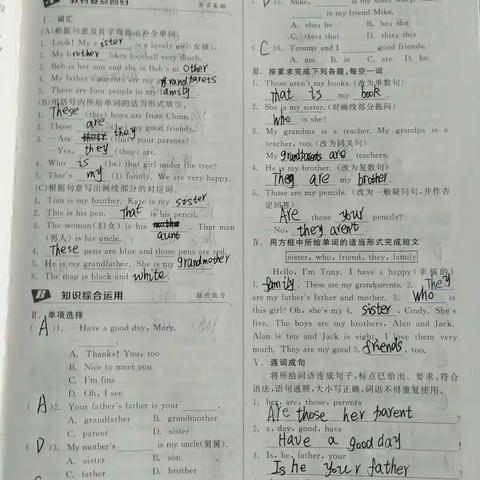 教材要点回归 夯实基础
Ⅰ. 词汇
(A)根据句意及首字母提示补全单词。
1. Look! My sister is a lovely girl(女孩).
2. My brother likes football very much.
3. Bob is her son and she is Bob's mOther.
4. My father's parents are my grandparets
5. There are four people in my family.
(B)用括号内所给单词的适当形式填空。
1. These (this) boys are from China.
2. Those are my good friends.
3. —Are they (that) your parents?
—Yes, they (they) are.
4. Who is (be) that girl under the tree?
5. That's my (I) family. We are very happy.
(C)根据句意写出画线部分的对应词。
1. Tom is my brother. Kate is my sister
2. This is his pen. That is his pencil.
3. The woman(妇女) is his aunt. That man
(男人) is his uncle.
4. These pens are blue and those pens are red.
5. He is my grandfather. She is my grandmother
6. The map is black and white.
知识综合运用 提升能力
Ⅱ. 单项选择
(A)1. —Have a good day, Mary.
—________.
A. Thanks! You, too
B. Nice to meet you
C. I'm fine
D. Oh, I see
(A)2. Your father's father is your ________.
A. grandfather B. grandmother
C. parent D. sister
(D)3. My mother's ________ is my uncle(舅舅).
A. sister B. son
C. father D. brother
________ is my friend Mike.
A. she; he B. he; she
C. this; that D. this; this
(C)6. Tommy and I ________ good friends.
A. am B. is C. are D. be
Ⅲ. 按要求完成下列各题,每空一词
1. Those aren't my books. (改为单数句)
That is my book.
2. She is my sister. (对画线部分提问)
Who is she?
3. My grandma is a teacher. My grandpa is a
teacher, too. (改为同义句)
My grandparents are teachers.
4. He is my brother. (改为复数句)
They are my brother.
5. Those are my pencils. (改为一般疑问句,并作否
定回答)
—Are those your pencils?
—No, they aren't.
Ⅳ. 用方框中所给单词的适当形式完成短文
sister, who, friend, they, family
Hello, I'm Tony. I have a happy (幸福的)
1. family. These are my grandparents. 2. They
are my father's father and mother. 3. Who is
this girl? Oh, she's my 4. sister, Cindy. She's
five. The boys are my brothers, Alan and Jack.
Alan is ten and Jack is eight. I love them very
much. They are my good 5. friends, too.
Ⅴ. 连词成句
将所给词语连成句子,标点已给出。要求:符合
语法,语句通顺,大小写正确,词语不得重复使用。
1. her, are, those, parents
Are those her parent?
2. a, day, good, have
Have a good day!
3. Is, he, father, your
Is he your father?